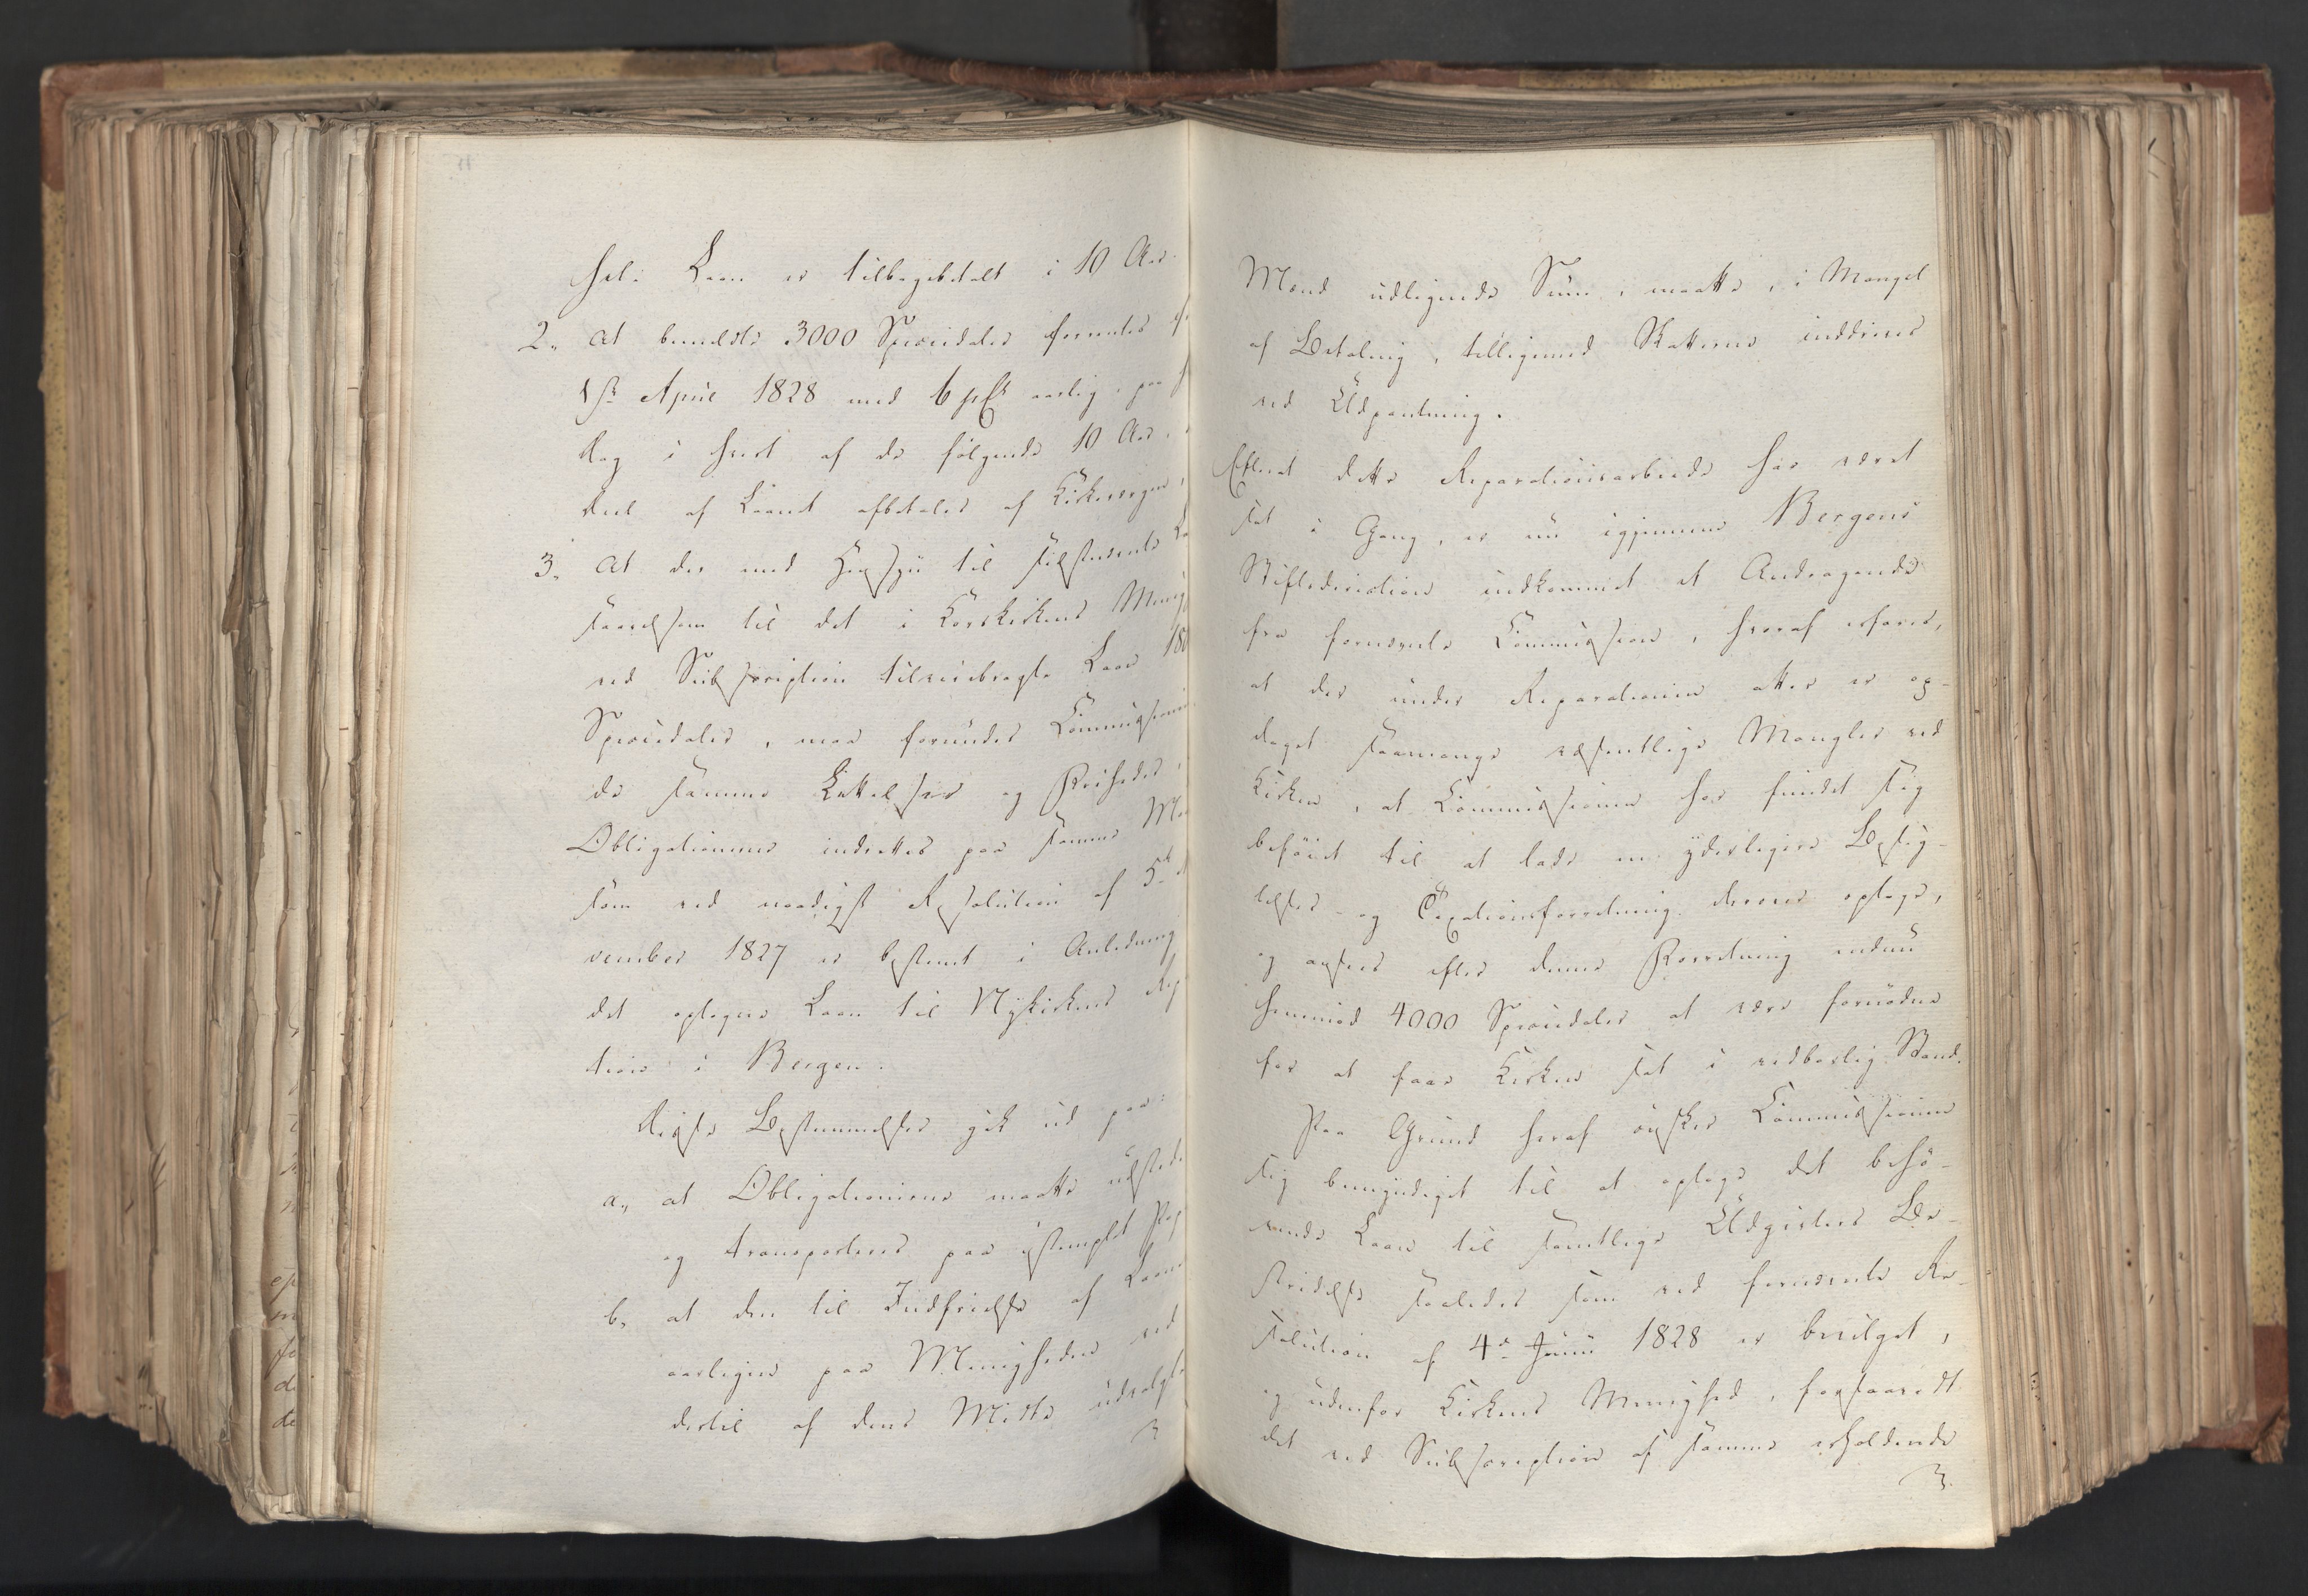 hele Laan er tilbagebetalt i 10 Aar.
2, at bemeldte 3000 Speciedaler forrentes
1ste April 1828 med 6 pCt aarlig, paa
dag i hvert af de følgende 10 Aar,
Deel af Laanet afbetales af Kirkeværgen,
3, at der med Hensyn til sidstnævnte
saavelsom til det i Korskirkens
ved Subscription tilveiebragte Laan
Speciedaler, maa forundes
de samme Lettelser og Friheder,
Obligationerne indrettes paa samme
som ved naadigst Resolution af 5te
vember 1827 er bestemt i Anledning
det optagne Laan til Nykirkens
tion i Bergen.
Disse Bestemmelser gik ud paa:
a, at Obligationerne maatte udstedes
og transporteres paa ustemplet
b, at den til Indfrielse af
aarligen paa Menigheden ved
dertil af dens Midte udvalgte
Mænd udlignede Sum, maatte, i Mangel
af Betaling, tilligemed Skatterne inddrives
ved Udpantning.
Efterat dette Reparationsarbeide har været
sat i Gang, er nu igjennem Bergens
Stiftsdirection indkommet et Andragende
fra fornævnte Commission, hvoraf erfares,
at der under Reparationen atter er op-
daget saamange væsentlige Mangler ved
Kirken, at Commissionen har fundet sig
beføiet til at lade en yderligere Besig-
telses- og Taxationsforretning derover optage,
og ansees efter denne Forretning endnu
henimod 4000 Speciedaler at være fornøden
for at faae Kirken sat i vedbørlig Stand.
Paa Grund heraf ønsker Commissionen
sig bemyndiget til at optage det behø-
vende Laan til samtlige Udgivters Be-
stridelse saaledes som ved fornævnte Re-
solution af 4de Juni 1828 er bevilget,
og udenfor Kirkens Menighed, forsaavidt
det ved Subscription af samme erholdende